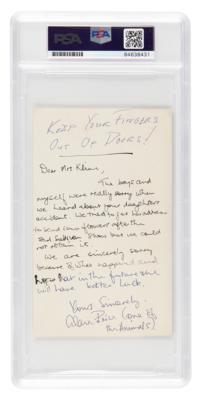 PSA
84639431
KEEP YOUR FINGERS
OUT OF DOORS!
Dear Mrs Kleine,
The boys and
myself were really sorry when
we heard about your daughters
accident. We tried to get
to send some flowers after
and shows but we could
not obtain it.
We are sincerely sorry
because of what happened and
hope that in the future she
will have better luck.
Yours Sincerely,
Alan Price (one of
the Animals)